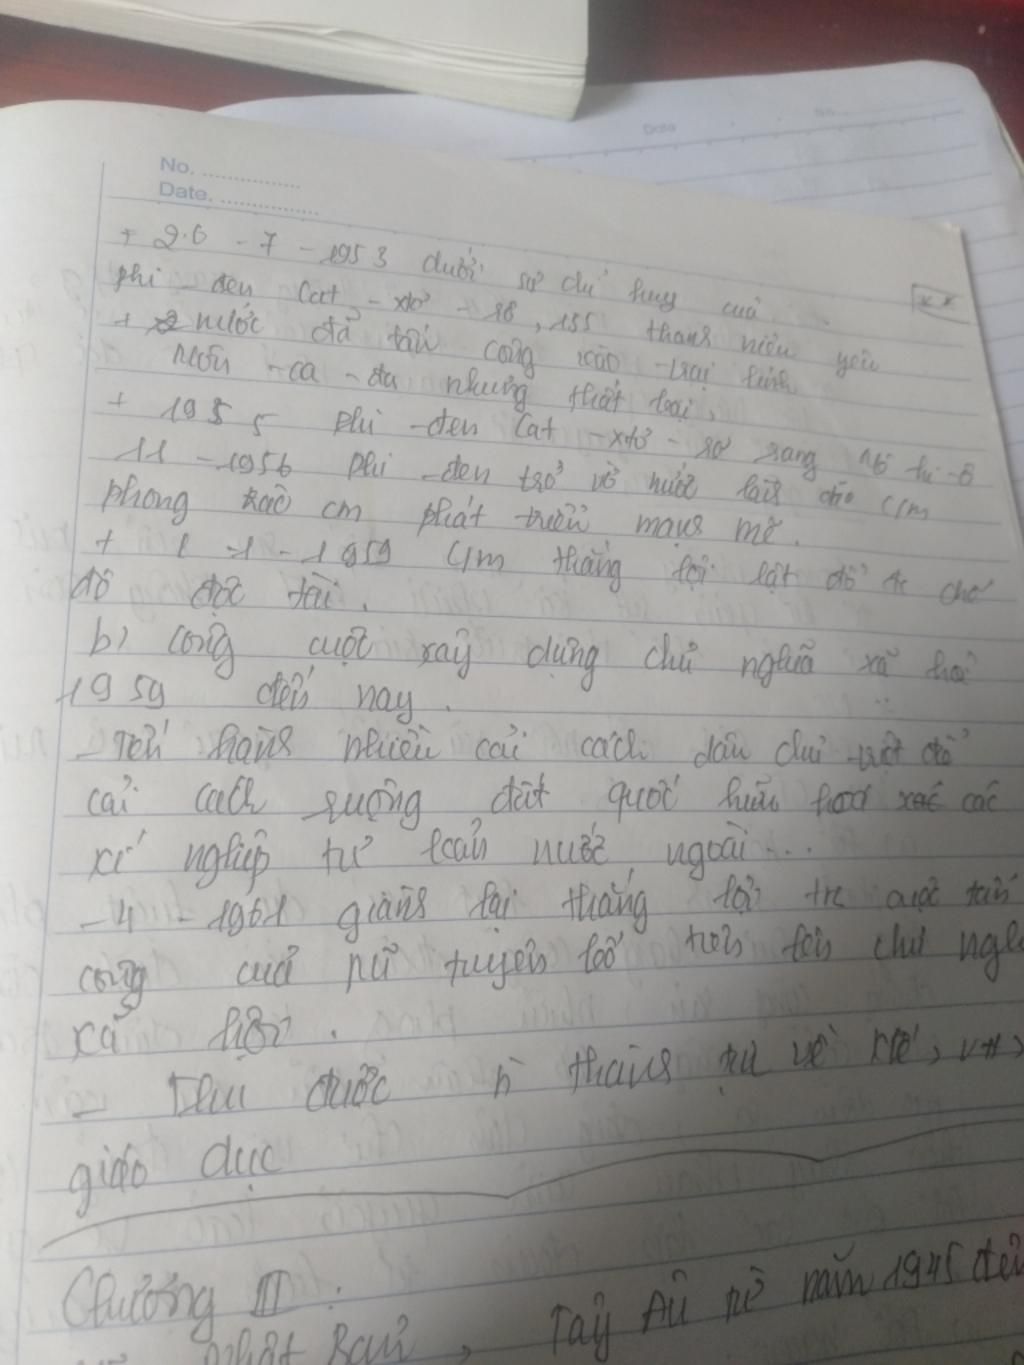 No. ...............
Date. ...............
Date No
+ 26 - 7 - 1953 dưới sự chỉ huy của
phi - đen Cat - xtơ - rô, 135 thanh niên yêu
+ nước đã tấn công vào trại lính
môn - ca - đa nhưng thất bại.
+ 1955 phi - đen Cat - xtơ - rô sang
11 - 1956 phi - đen trở về nước lãnh đạo c/m
phong trào cm phát triển mạnh mẽ.
+ 1 - 1 - 1959 c/m thắng lợi lật đổ đc chế
độ độc tài.
b) công cuộc xây dựng chủ nghĩa xã hội
1959 đến nay.
- Tiến hành nhiều cải cách dân chủ triệt để
cải cách ruộng đất quốc hữu hoá các
xí nghiệp tư bản nước ngoài...
- 4 - 1961 giành lại thắng lợi tr cuộc tấn
công của mĩ tuyên bố tiến lên chủ ngh
xã hội.
- Thu được n thành tựu về
giáo dục
Chương III :
Nhật Bản, Tây Âu từ năm 1945 đến